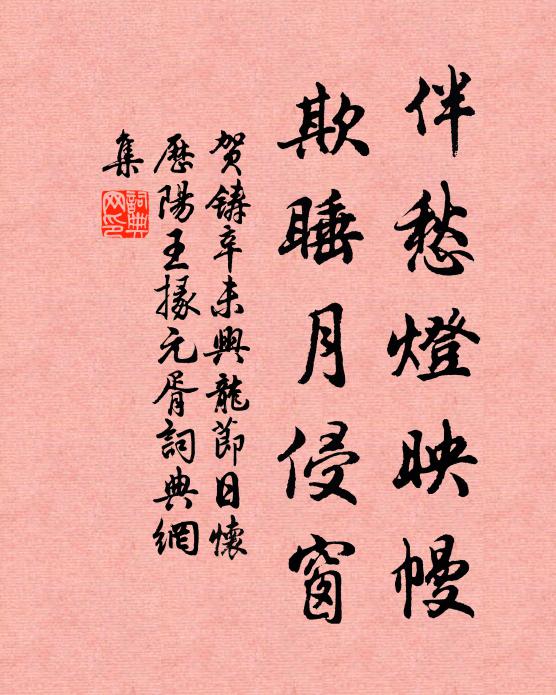 伴愁燈映幔
欺睡月侵窗
賀鑄辛未興龍節日懷
歷陽王掾元胥詞典網
集
詞典网印